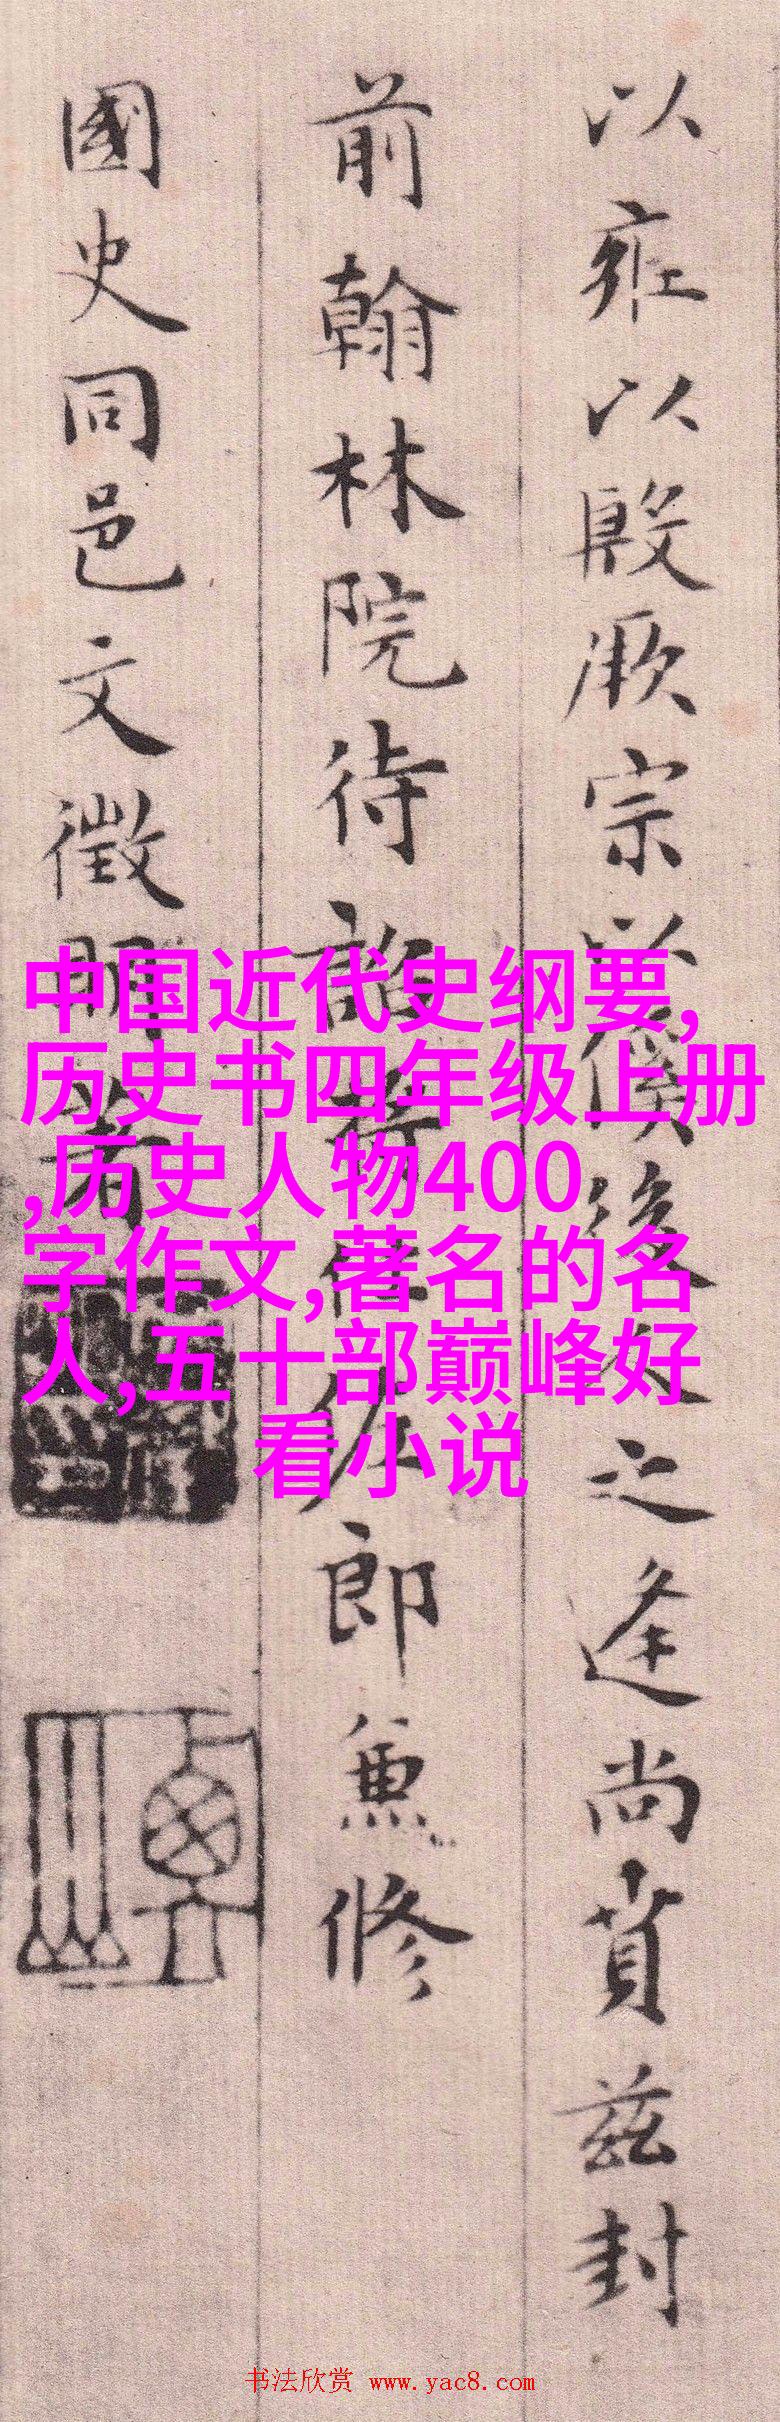 以雍以殷厥宗以傒後人之逢尚賁兹封
前翰林院待詔將仕佐郎兼修
國史同邑文徵明著
中国近代史纲要,
历史书四年级上册
,历史人物400
字作文,著名的名
人,五十部巅峰好
看小说
书法欣赏 www.yac8.com